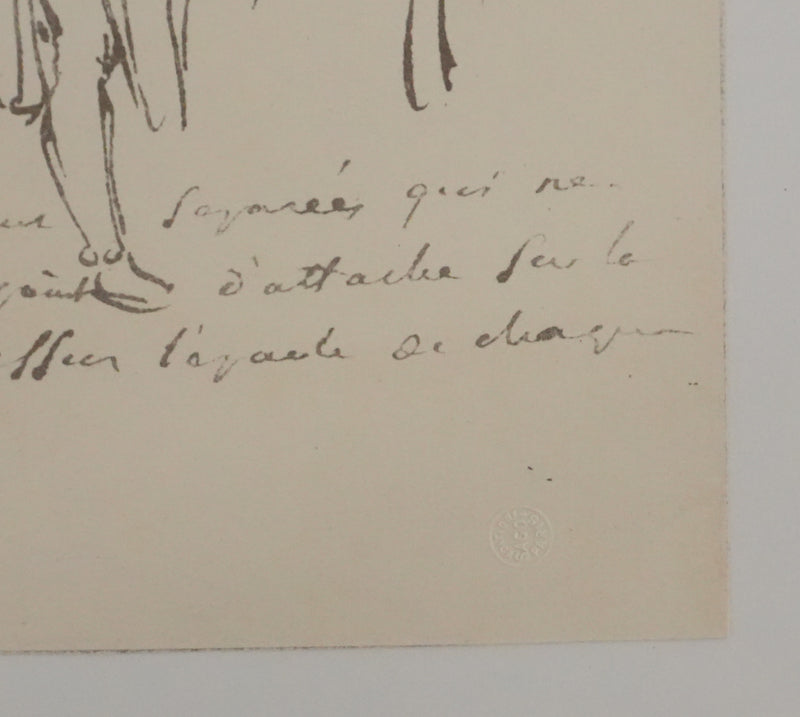 separées qui ne
point d'attache sur la
l'épaule de chaque